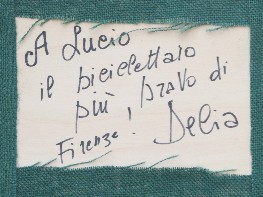 A Lucio
il biciclettaio
più bravo di
Firenze. Delia